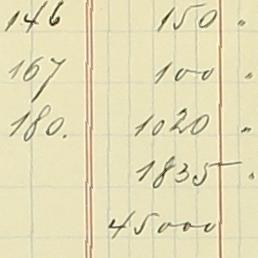 146 150 "
167 100 "
180. 1020 "
1835 "
45000